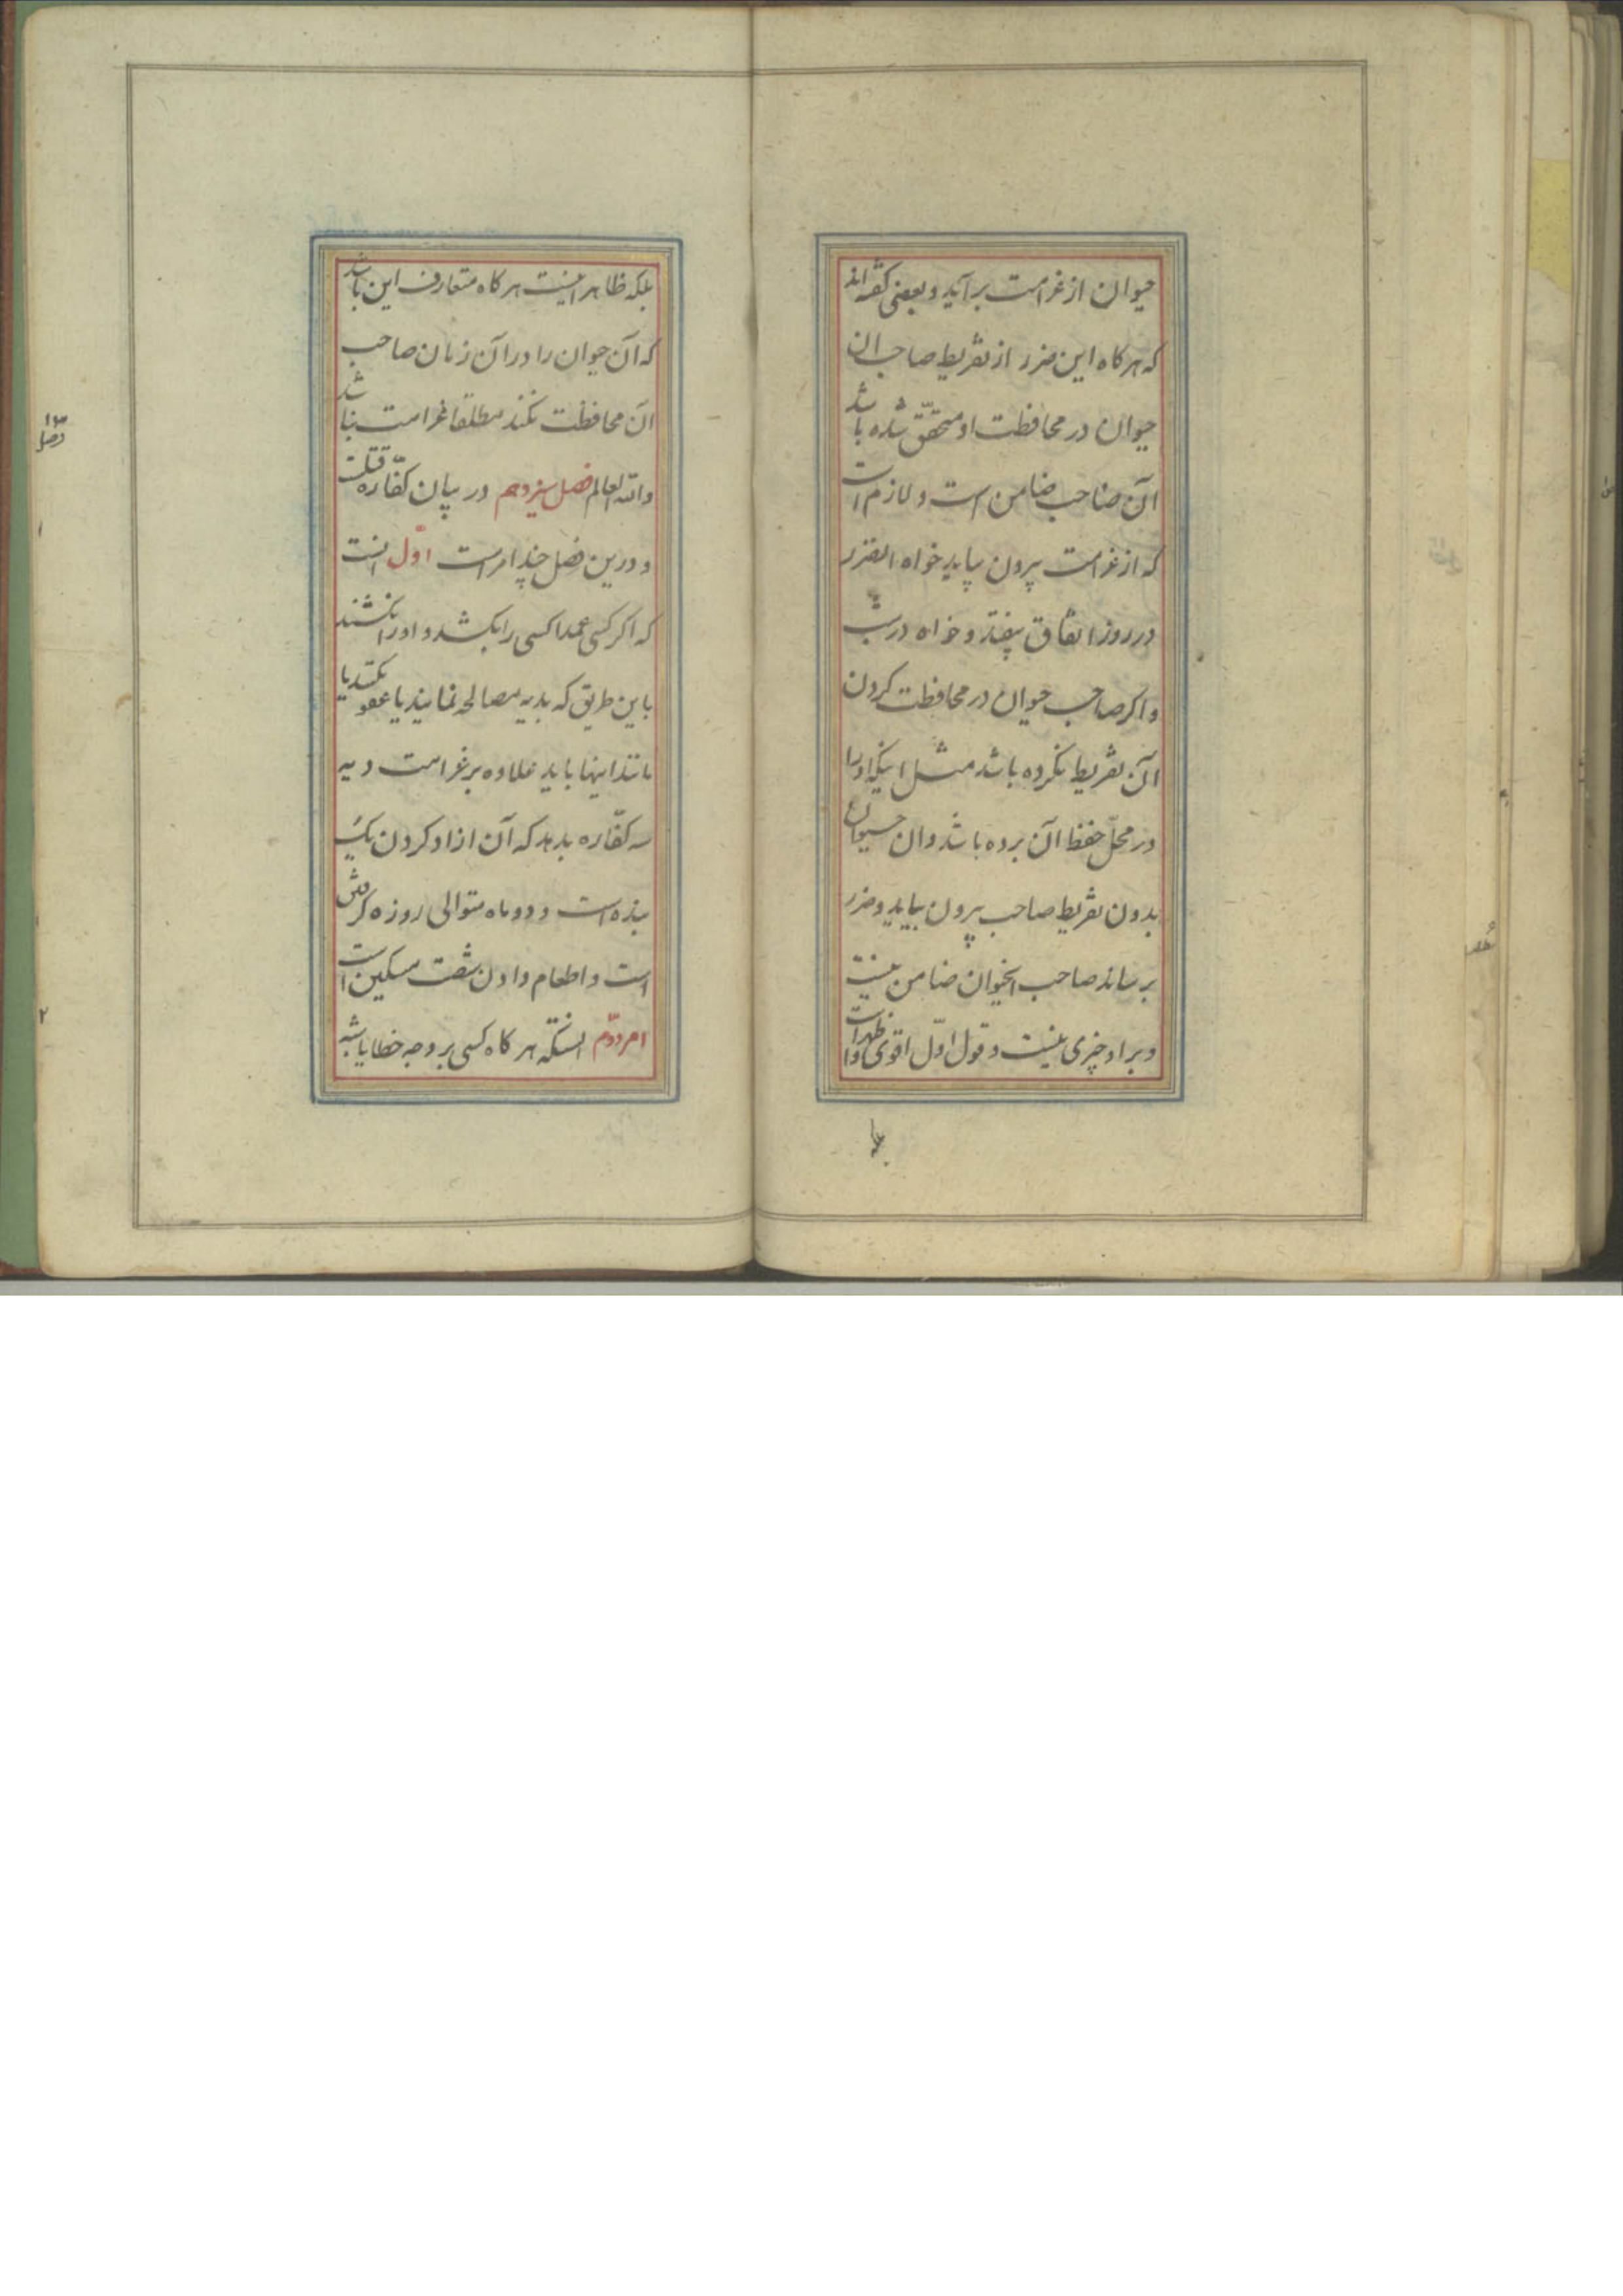 حیوان از غرامت برآید و بعضی گفته‌اند
که هرکاه این ضرر از تفریط صاحب ان
حیوان در محافظت او متحقّق شده باشد
آن صاحب ضامن است و لازم است
که از غرامت بیرون بیاید خواه انضرر
در روز اتفاق بیفتد و خواه در شب
و اکر صاحب حیوان در محافظت کردن
آن تفریط نکرده باشد مثل اینکه او را
در محلّ حفظ آن برده باشد و ان حیوان
بدون تفریط صاحب بیرون بیاید و ضرر
برساند صاحب انحیوان ضامن نیست
و بر او چیزی نیست و قول اوّل اقوی و اظهر است
بلکه
بلکه ظاهر اینست هرکاه متعارف این باشد
که آن حیوان را در آن زمان صاحب
آن محافظت نکند مطلقا غرامت نباشد
والله العالم فصل سیزدهم در بیان کفّاره قتلست
و درین فصل چند امر است اوّل انست
که اکر کسی عمدا کسی را بکشد و او را نکشند
باین طریق که بدیه مصالحه نمایند یا عفو بکنند یا
مانند اینها باید علاوه بر غرامت دیه
سه کفّاره بدهد که آن ازاد کردن یک
بنده است و دو ماه متوالی روزه کرفتن
است و اطعام دادن شصت مسکین است
امر دوّم انستکه هرکاه کسی بر وجه خطا یا شبه
۱۳
فصل
۱
۲